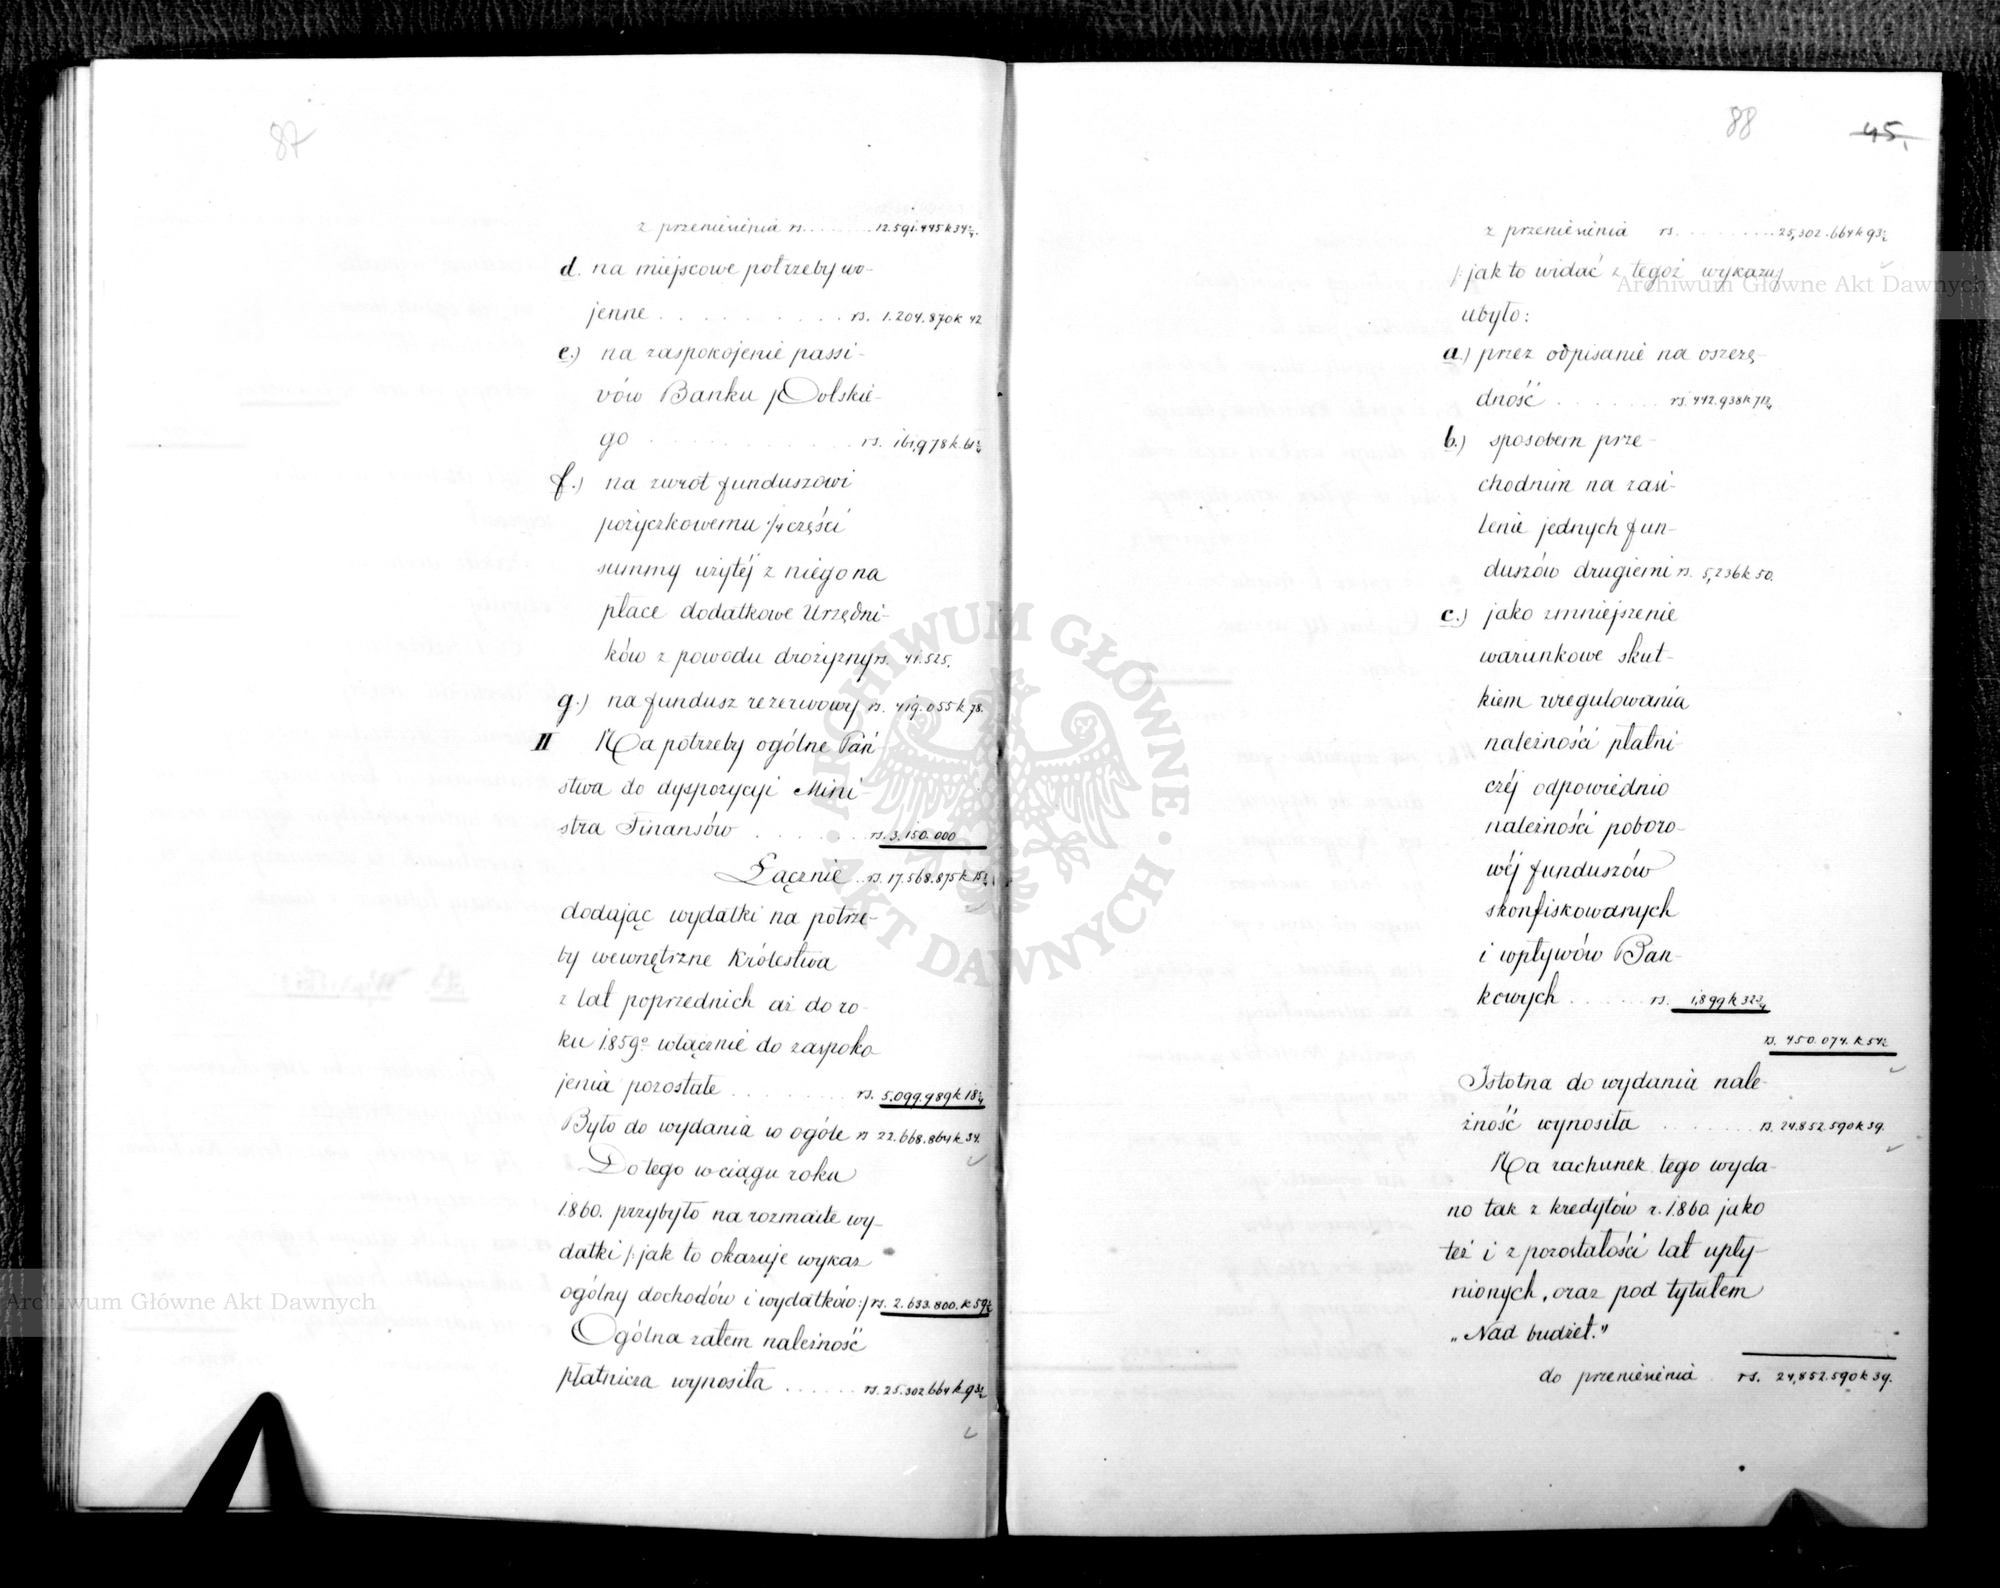 87
z przeniesienia rs. . . . . . . . 12.591.445 k 34 3/4.
d. na miejscowe potrzeby wo-
jenne . . . . . . . . . . rs. 1.204.870 k 42
e.) na zaspokojenie passi-
vów Banku Polskie-
go . . . . . . . . . . . rs. 161,978 k. 61 1/2
f.) na zwrot funduszowi
pożyczkowemu 1/4 części
summy użytéj z niego na
płace dodatkowe Urzędni-
ków z powodu drożyzny rs. 41.525.
g.) na fundusz rezerwowy rs. 419.055 k 78.
II Na potrzeby ogólne Pań-
stwa do dyspozycyi Mini-
stra Finansów . . . . . . . rs. 3.150.000
Łącznie . . rs. 17.568.875 k 15 3/4
dodając wydatki na potrze-
by wewnętrzne Królestwa
z lat poprzednich aż do ro-
ku 1859o włącznie do zaspoko-
jenia pozostałe . . . . . . . . rs. 5.099.989 k 18 1/4
Było do wydania w ogóle rs 22.668.864 k 34.
Do tego w ciągu roku
1860. przybyło na rozmaite wy-
datki /: jak to okazuje wykaz
ogólny dochodów i wydatków :/ rs. 2.633.800. k 59 1/2
Ogólna zatem należność
płatnicza wynosiła . . . . . . rs. 25.302.664 k 93 1/2
88
45,
z przeniesienia rs. . . . . . . . . 25,302.664 k 93 1/2
/: jak to widać z tegoż wykazu/
ubyło:
a.) przez odpisanie na oszczę-
dność . . . . . . . rs. 442.938 k 71 3/4
b.) sposobem prze-
chodnim na zasi-
lenie jednych fun-
duszów drugiemi rs. 5,236 k 50.
c.) jako zmniejszenie
warunkowe skut-
kiem uregulowania
należności płatni
czéj odpowiednio
należności poboro-
wéj funduszów
skonfiskowanych
i wpływów Ban-
kowych . . . . . . rs. 1,899 k 32 3/4
rs. 450.074. k 54 1/2
Istotna do wydania nale-
żność wynosiła . . . . . . . rs. 24.852.590 k 39.
Na rachunek tego wyda-
no tak z kredytów r. 1860. jako
też i z pozostałości lat upły-
nionych, oraz pod tytułem
„Nad budżet."
do przeniesienia . rs. 24,852.590 k 39.
Archiwum Główne Akt Dawnych
Archiwum Główne Akt Dawnych
ARCHIWUM GŁÓWNE · AKT DAWNYCH ·